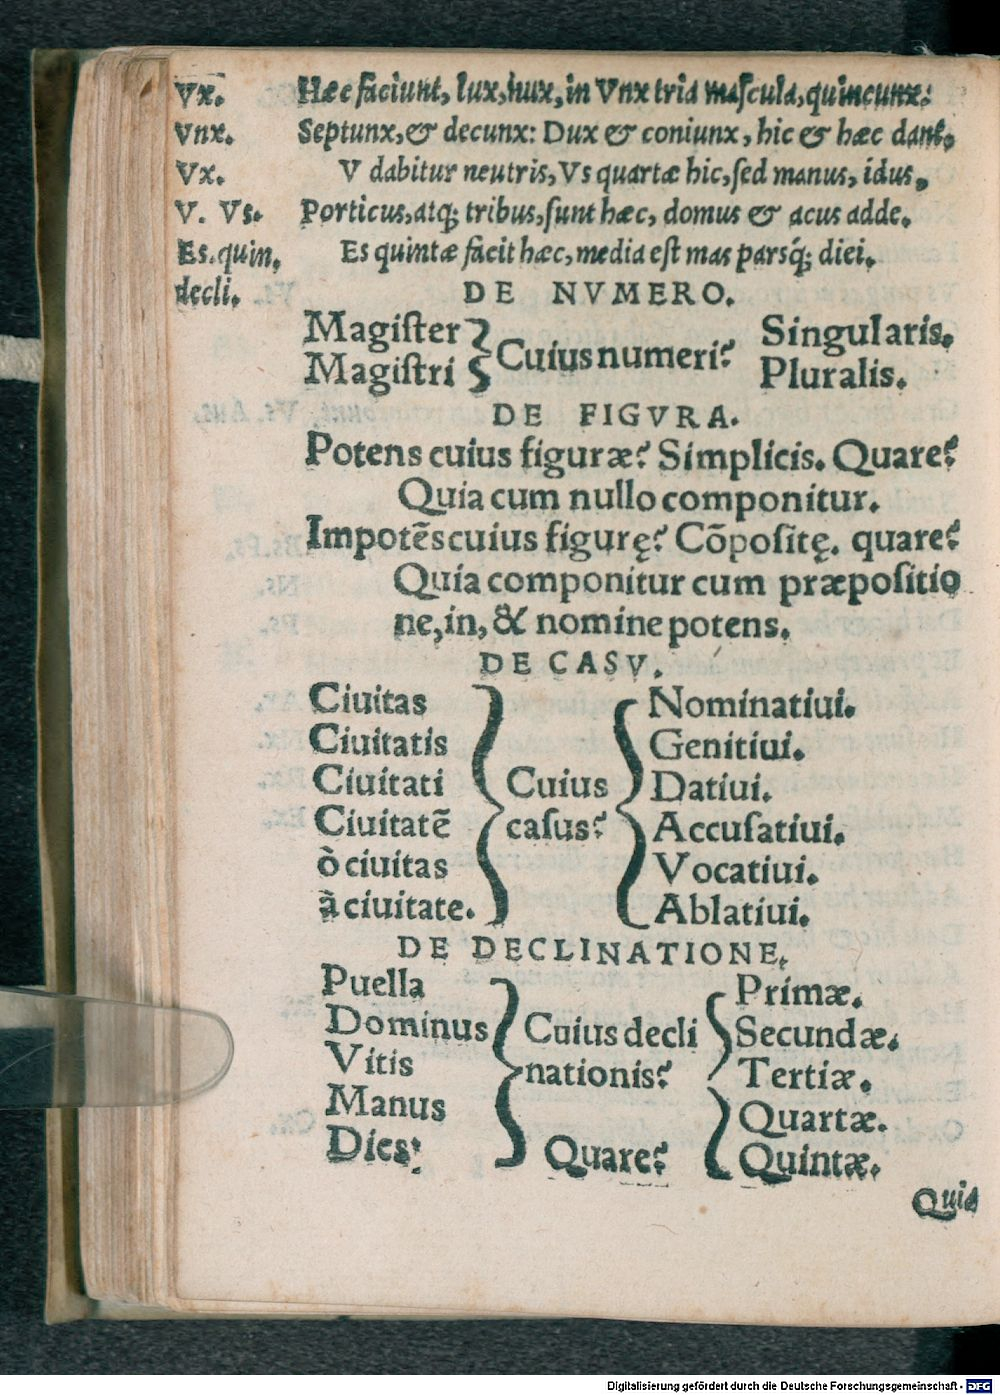 Vx. Hæc faciunt, lux, nux, in Vnx tria maſcula, quincunx:
Vnx. Septunx, & decunx: Dux & coniunx, hic & hæc dant.
Vx. V dabitur neutris, Vs quartæ hic, ſed manus, idus,
V. Vs. Porticus, atq; tribus, ſunt hæc, domus & acus adde.
Es. quin. Es quintæ facit hæc, media eſt mas parsq́; diei.
decli. DE NVMERO.
Magiſter Singularis.
Cuius numeri?
Magiſtri Pluralis.
DE FIGVRA.
Potens cuius figuræ? Simplicis. Quare?
Quia cum nullo componitur.
Impotẽs cuius figurę? Cõpoſitę. quare?
Quia componitur cum præpoſitio
ne, in, & nomine potens.
DE CASV.
Ciuitas Nominatiui.
Ciuitatis Genitiui.
Ciuitati Cuius Datiui.
Ciuitatẽ caſus? Accuſatiui.
ò ciuitas Vocatiui.
à ciuitate. Ablatiui.
DE DECLINATIONE.
Puella Primæ.
Dominus Cuius decli Secundæ.
Vitis nationis? Tertiæ.
Manus Quartæ.
Dies: Quare? Quintæ.
Quia
Digitalisierung gefördert durch die Deutsche Forschungsgemeinschaft - DFG